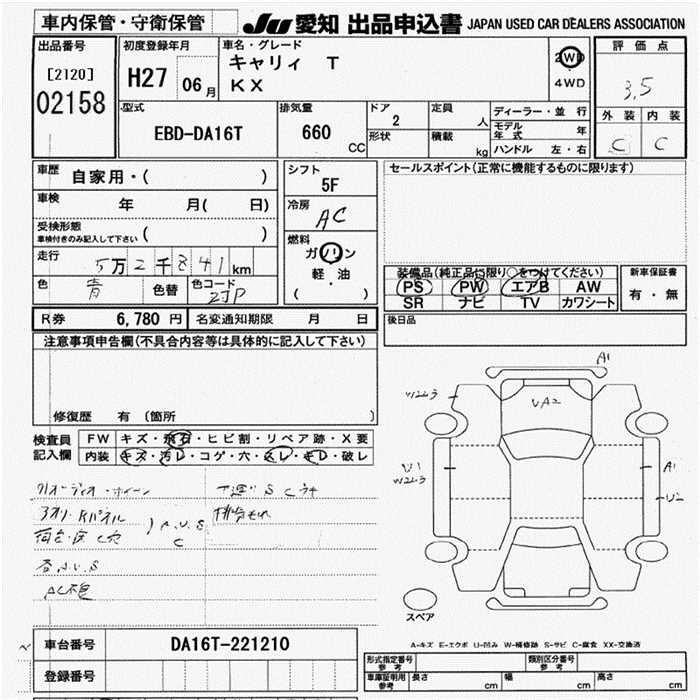 車内保管・守衛保管 JU 愛知 出品申込書 JAPAN USED CAR DEALERS ASSOCIATION
出品番号
[2120]
02158
初度登録年月
H27 06月
車名・グレード
キャリィ T
KX
2WD
4WD
評価点
3.5
外装 内装
C C
型式
EBD-DA16T
排気量
660 CC
ドア
2
形状
定員
人
積載
kg
ディーラー・並行
モデル年式 年
ハンドル 左・右
車歴 自家用・( )
車検 年 月( 日)
受検形態
車検付きのみ記入して下さい ( )
走行 5万2千841km
色 青 色替 色コード ZJP
シフト
5F
冷房
AC
燃料
ガソリン
軽・油
( )
セールスポイント(正常に機能するものに限ります)
装備品(純正品に限り○をつけてください)
PS PW エアB AW
SR ナビ TV カワシート
新車保証書
有・無
後日品
R券 6,780円 名変通知期限 月 日
注意事項申告欄(不具合内容等は具体的に記入して下さい)
修復歴 有 〔箇所 〕
検査員記入欄
FW キズ・飛石・ヒビ割・リペア跡・X要
内装 キズ・汚レ・コゲ・穴・スレ・キレ・破レ
下廻り S C
AC
A1
W2 3
UA2
U1
W2 3
A1
U2
スペア
A-キズ E-エクボ U-凹み W-補修跡 S-サビ C-腐食 XX-交換済
車台番号 DA16T-221210
登録番号
形式指定番号 参考
類別区分番号 参考
車庫証明用 参考 長さ cm 幅 cm 高さ cm